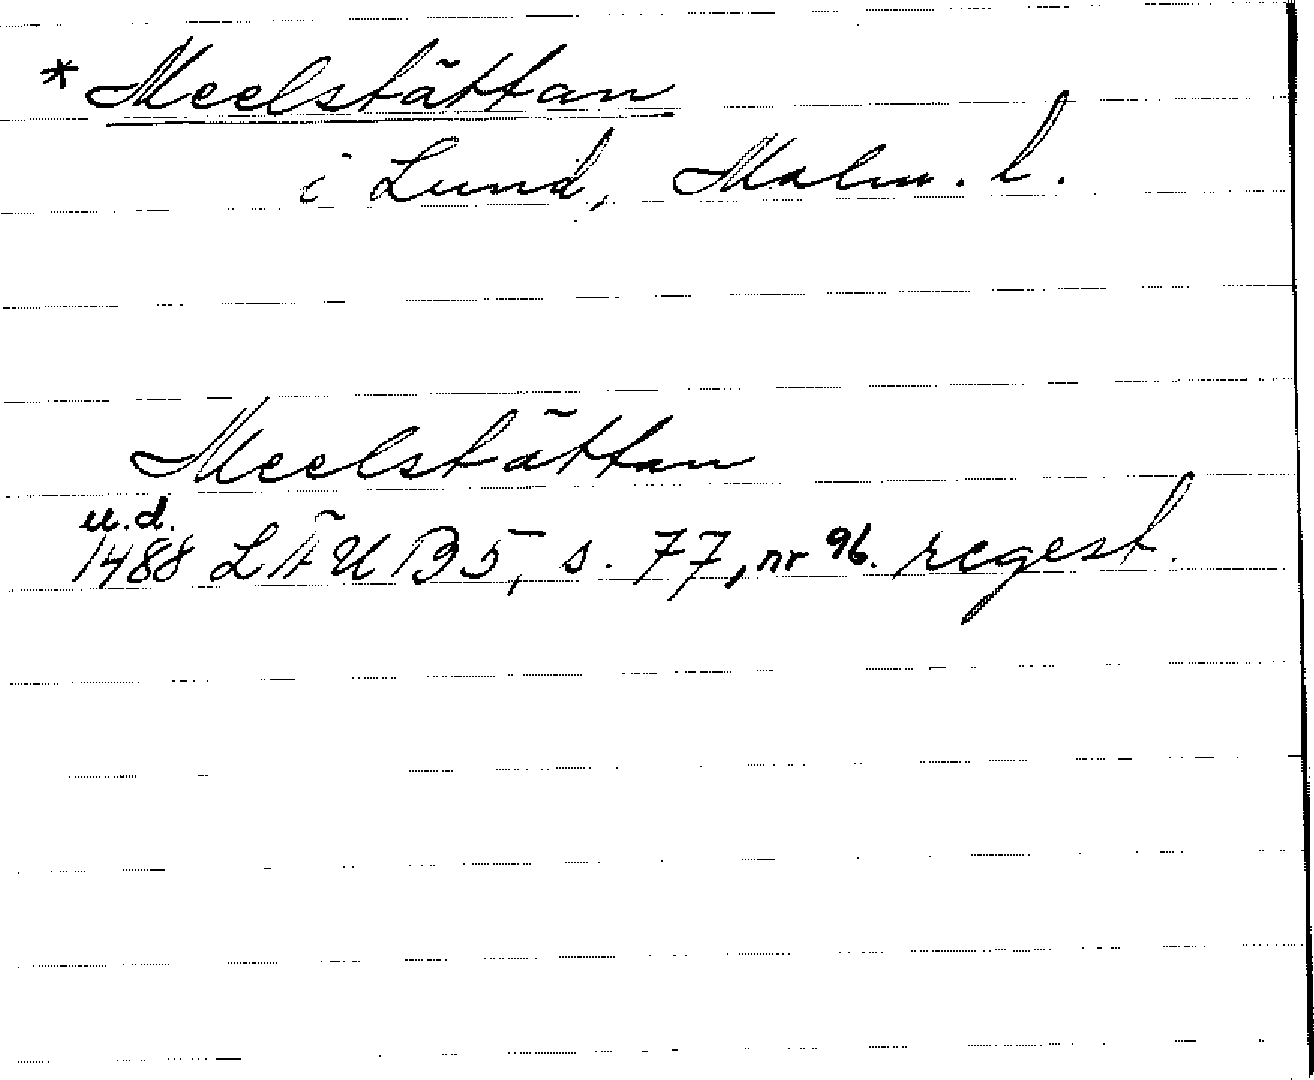 * Meelstättan
i Lund, Malm. l.
Meelstättan
u.d.
1488 LÄUB5, s. 77, nr 96. regest.